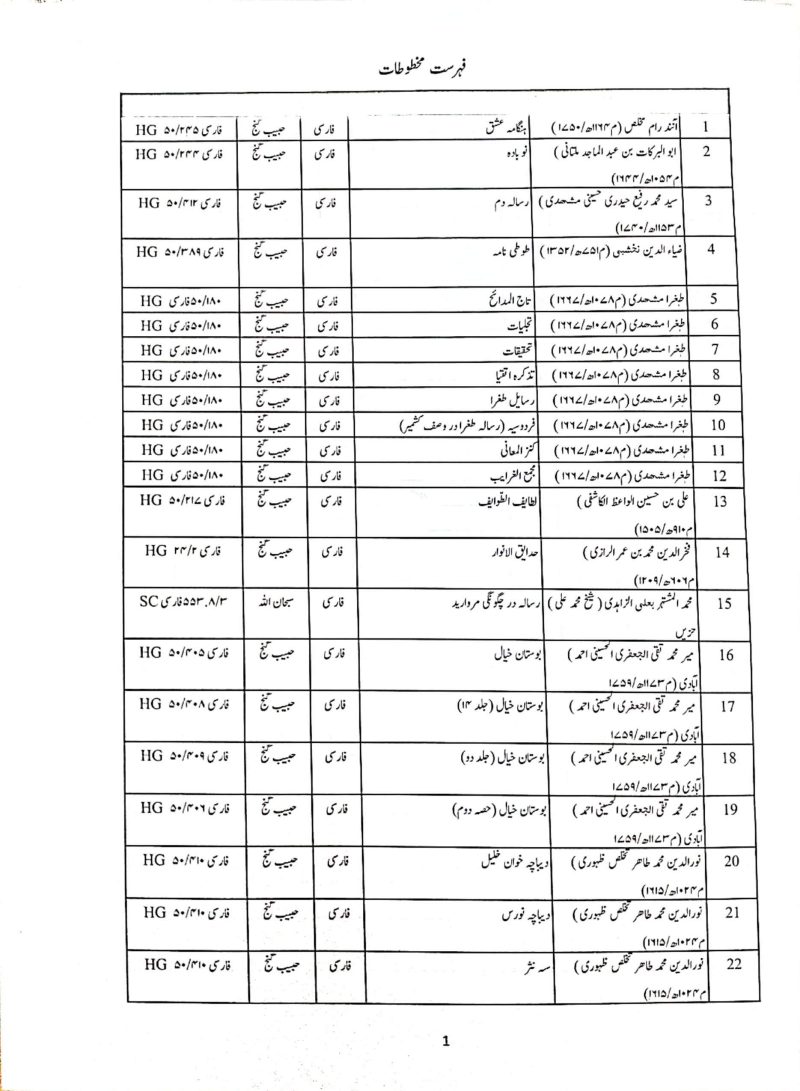 فہرست مخطوطات
1 آنند رام مخلص (م۱۱۶۴ھ/۱۷۵۰) ہنگامہ عشق فارسی حبیب گنج HG فارسی ۵۰/۲۴۵
2 ابو البرکات بن عبد الماجد ملتانی ( نو بادہ فارسی حبیب گنج HG فارسی ۵۰/۲۴۴
م۱۰۵۴ھ/۱۶۴۴)
3 سید محمد رفیع حیدری حسینی مشھدی ( رسالہ دم فارسی حبیب گنج HG فارسی ۵۰/۴۱۲
م۱۱۵۳ھ/۱۷۴۰)
4 ضیاء الدین نخشبی (م۷۵۱ھ/۱۳۵۲) طوطی نامہ فارسی حبیب گنج HG فارسی ۵۰/۳۸۹
5 طغرا مشھدی (م۱۰۷۸ھ/۱۶۶۷) تاج المدائح فارسی حبیب گنج HG فارسی ۵۰/۱۸۰
6 طغرا مشھدی (م۱۰۷۸ھ/۱۶۶۷) تجلیات فارسی حبیب گنج HG فارسی ۵۰/۱۸۰
7 طغرا مشھدی (م۱۰۷۸ھ/۱۶۶۷) تحقیقات فارسی حبیب گنج HG فارسی ۵۰/۱۸۰
8 طغرا مشھدی (م۱۰۷۸ھ/۱۶۶۷) تذکرہ اتقیا فارسی حبیب گنج HG فارسی ۵۰/۱۸۰
9 طغرا مشھدی (م۱۰۷۸ھ/۱۶۶۷) رسایل طغرا فارسی حبیب گنج HG فارسی ۵۰/۱۸۰
10 طغرا مشھدی (م۱۰۷۸ھ/۱۶۶۷) فردوسیہ (رسالہ طغرا در وصف کشمیر) فارسی حبیب گنج HG فارسی ۵۰/۱۸۰
11 طغرا مشھدی (م۱۰۷۸ھ/۱۶۶۷) کنز المعانی فارسی حبیب گنج HG فارسی ۵۰/۱۸۰
12 طغرا مشھدی (م۱۰۷۸ھ/۱۶۶۷) مجمع الغرایب فارسی حبیب گنج HG فارسی ۵۰/۱۸۰
13 علی بن حسین الواعظ الکاشفی ( لطایف الطوایف فارسی حبیب گنج HG فارسی ۵۰/۲۱۷
م۹۱۰ھ/۱۵۰۵)
14 فخرالدین محمد بن عمر الرازی ( حدایق الانوار فارسی حبیب گنج HG فارسی ۲۴/۲
م۶۰۶ھ/۱۲۰۹)
15 محمد المشتہر بعلی الزاہدی ( شیخ محمد علی ) رسالہ در چگونگی مروارید فارسی سبحان اللہ SC فارسی ۵۵۳.۸/۳
حزیں
16 میر محمد تقی الجعفری الحسینی احمد ( بوستان خیال فارسی حبیب گنج HG فارسی ۵۰/۴۰۵
آبادی (م۱۱۷۳ھ/۱۷۵۹
17 میر محمد تقی الجعفری الحسینی احمد ( بوستان خیال (جلد ۱۴) فارسی حبیب گنج HG فارسی ۵۰/۴۰۸
آبادی (م۱۱۷۳ھ/۱۷۵۹
18 میر محمد تقی الجعفری الحسینی احمد ( بوستان خیال (جلد دو) فارسی حبیب گنج HG فارسی ۵۰/۴۰۹
آبادی (م۱۱۷۳ھ/۱۷۵۹
19 میر محمد تقی الجعفری الحسینی احمد ( بوستان خیال (حصہ دوم) فارسی حبیب گنج HG فارسی ۵۰/۴۰۶
آبادی (م۱۱۷۳ھ/۱۷۵۹
20 نورالدین محمد طاھر تخلص ظہوری ( دیباچہ خوان خلیل فارسی حبیب گنج HG فارسی ۵۰/۴۱۰
م۱۰۲۴ھ/۱۶۱۵)
21 نورالدین محمد طاھر تخلص ظہوری ( دیباچہ نورس فارسی حبیب گنج HG فارسی ۵۰/۴۱۰
م۱۰۲۴ھ/۱۶۱۵)
22 نورالدین محمد طاھر تخلص ظہوری ( سہ نثر فارسی حبیب گنج HG فارسی ۵۰/۴۱۰
م۱۰۲۴ھ/۱۶۱۵)
1